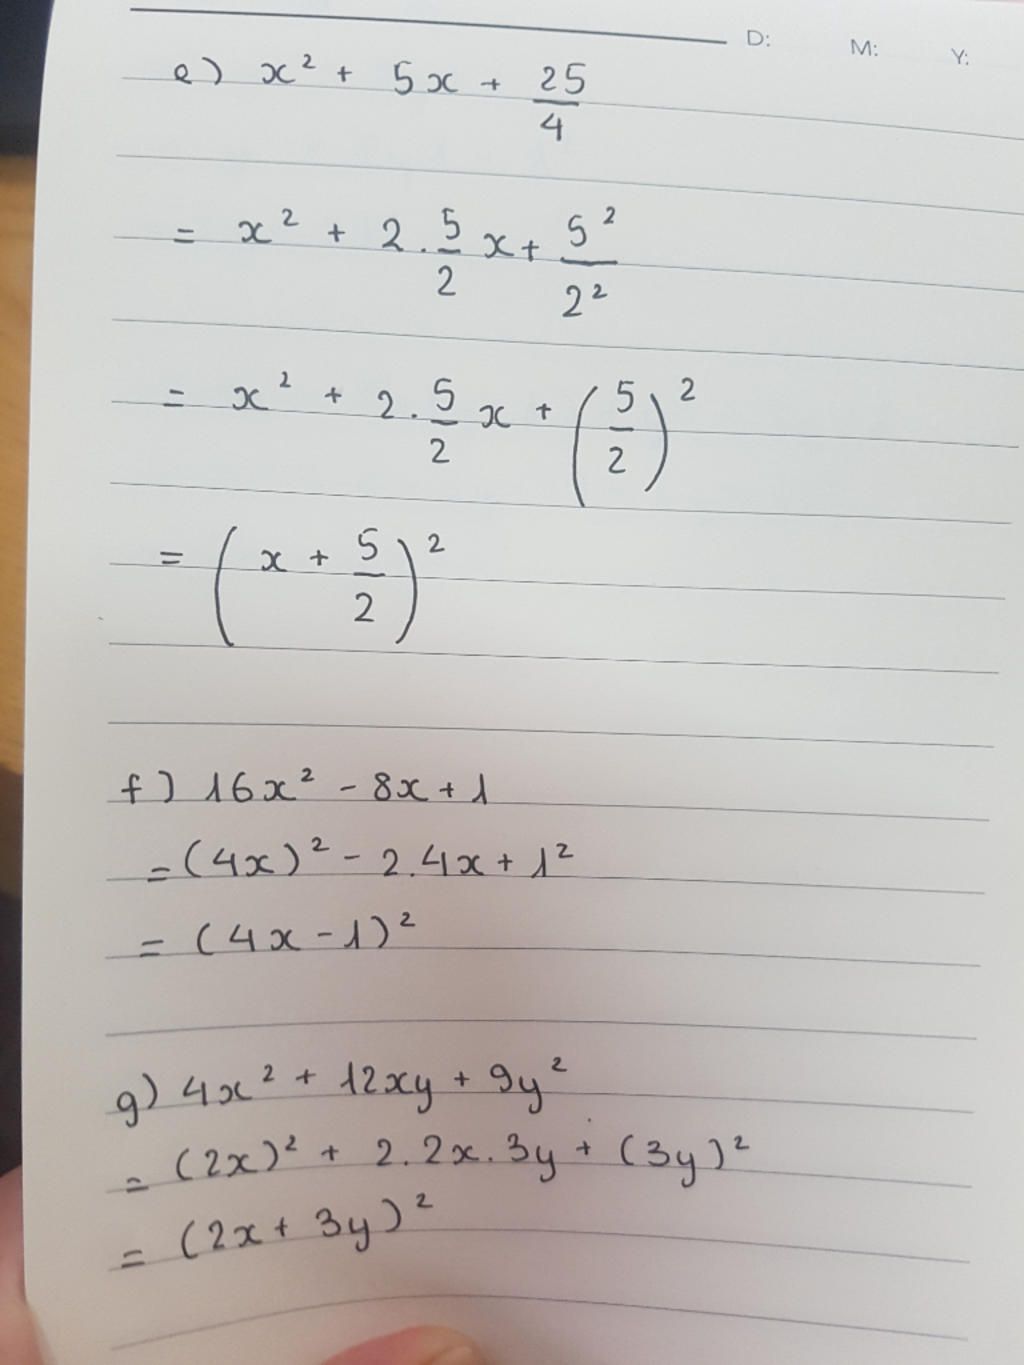 D: M: Y:
e) x² + 5x + 25/4
= x² + 2.5/2 x + 5²/2²
= x² + 2.5/2 x + (5/2)²
= (x + 5/2)²
f) 16x² - 8x + 1
= (4x)² - 2.4x + 1²
= (4x - 1)²
g) 4x² + 12xy + 9y²
= (2x)² + 2.2x.3y + (3y)²
= (2x + 3y)²